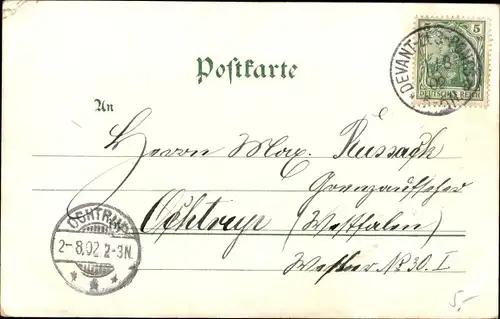 5 5
DEUTSCHES REICH
DEVANT-LES-PONTS
Postkarte
An
Herrn Max. Russagh
Grenzaufseher
Ochtrup (Westfalen)
OCHTRUP
2-8.02.2-3N.
No 30. I
5,-